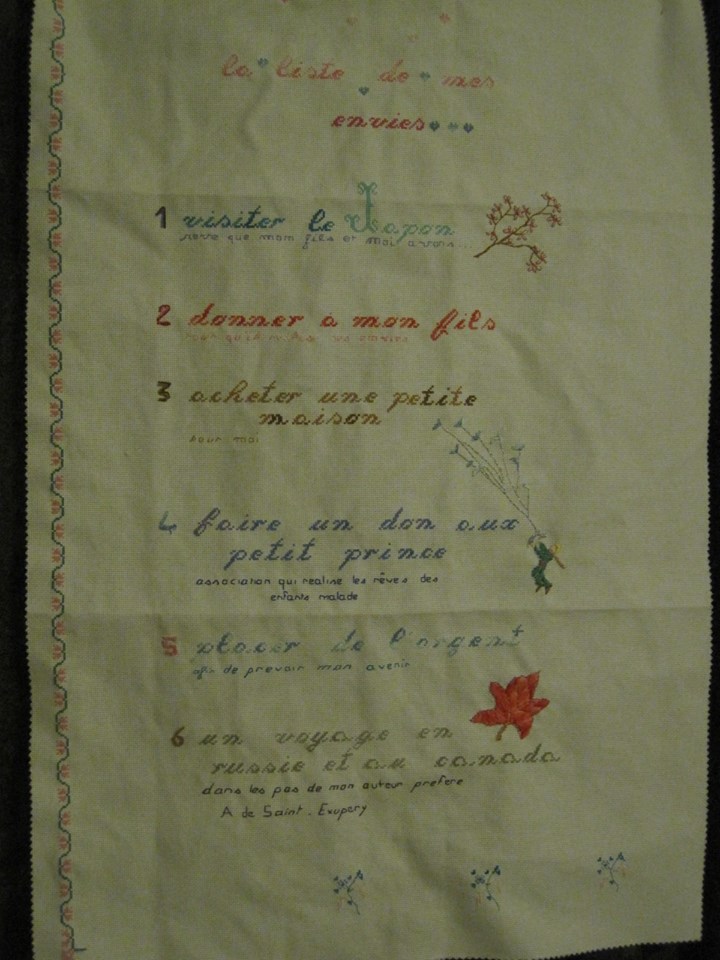 la liste de mes
envies...
1 visiter le Japon
reve que mon fils et moi avons...
2 donner à mon fils
pour qu'il realise ses envies
3 acheter une petite
maison
pour moi
4 faire un don aux
petit prince
association qui realise les rêves des
enfants malade
5 placer de l'argent
afin de prevoir mon avenir
6 un voyage en
russie et au canada
dans les pas de mon auteur prefere
A de Saint. Exupery